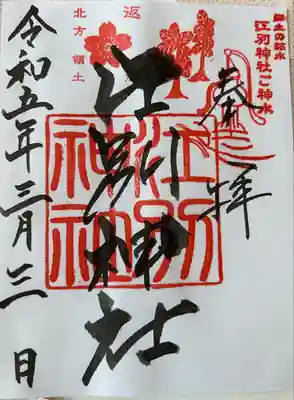 郷土の銘水
江別神社ご神水
奉拝
江別神社
江別
神社
返
北方領土
令和五年三月三日